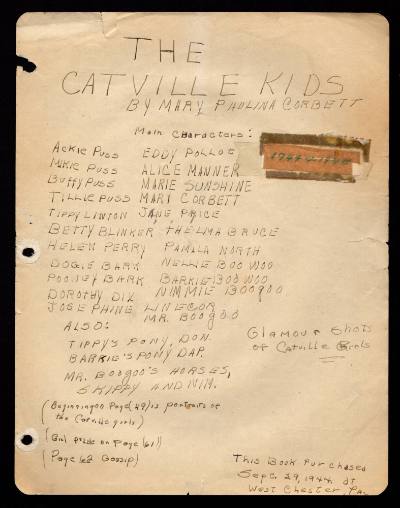 THE
CATVILLE KIDS
BY MARY PAULINA CORBETT
Main Characters:
Ackie Puss EDDY POLLOC
Mikie Puss ALICE MANNER
Buffy Puss MARIE SUNSHINE
Tillie Puss MARY CORBETT
Tippy Linton JANE PRICE
BETTY BLINKER THELMA BRUCE
HELEN PERRY PAMILA NORTH
DOGIE BARK NELLIE BOO WOO
POOGEY BARK BARKIE BOO WOO
DOROTHY DIX NIMMIE BOOGOO
JOSEPHINE LINECOR
MR. BOOGOO
ALSO:
TIPPY'S PONY, DON.
BARKIE'S PONY DAP.
MR. BOOGOO'S HORSES,
SKIPPY AND NIM.
Glamour Shots
of Catville Girls
(Beginning on Page (49) is portraits of
the Catville girls)
(Girl on Page (61))
(Page 62 Gossip)
This Book Purchased
Sept. 29, 1944 at
West Chester, Pa.